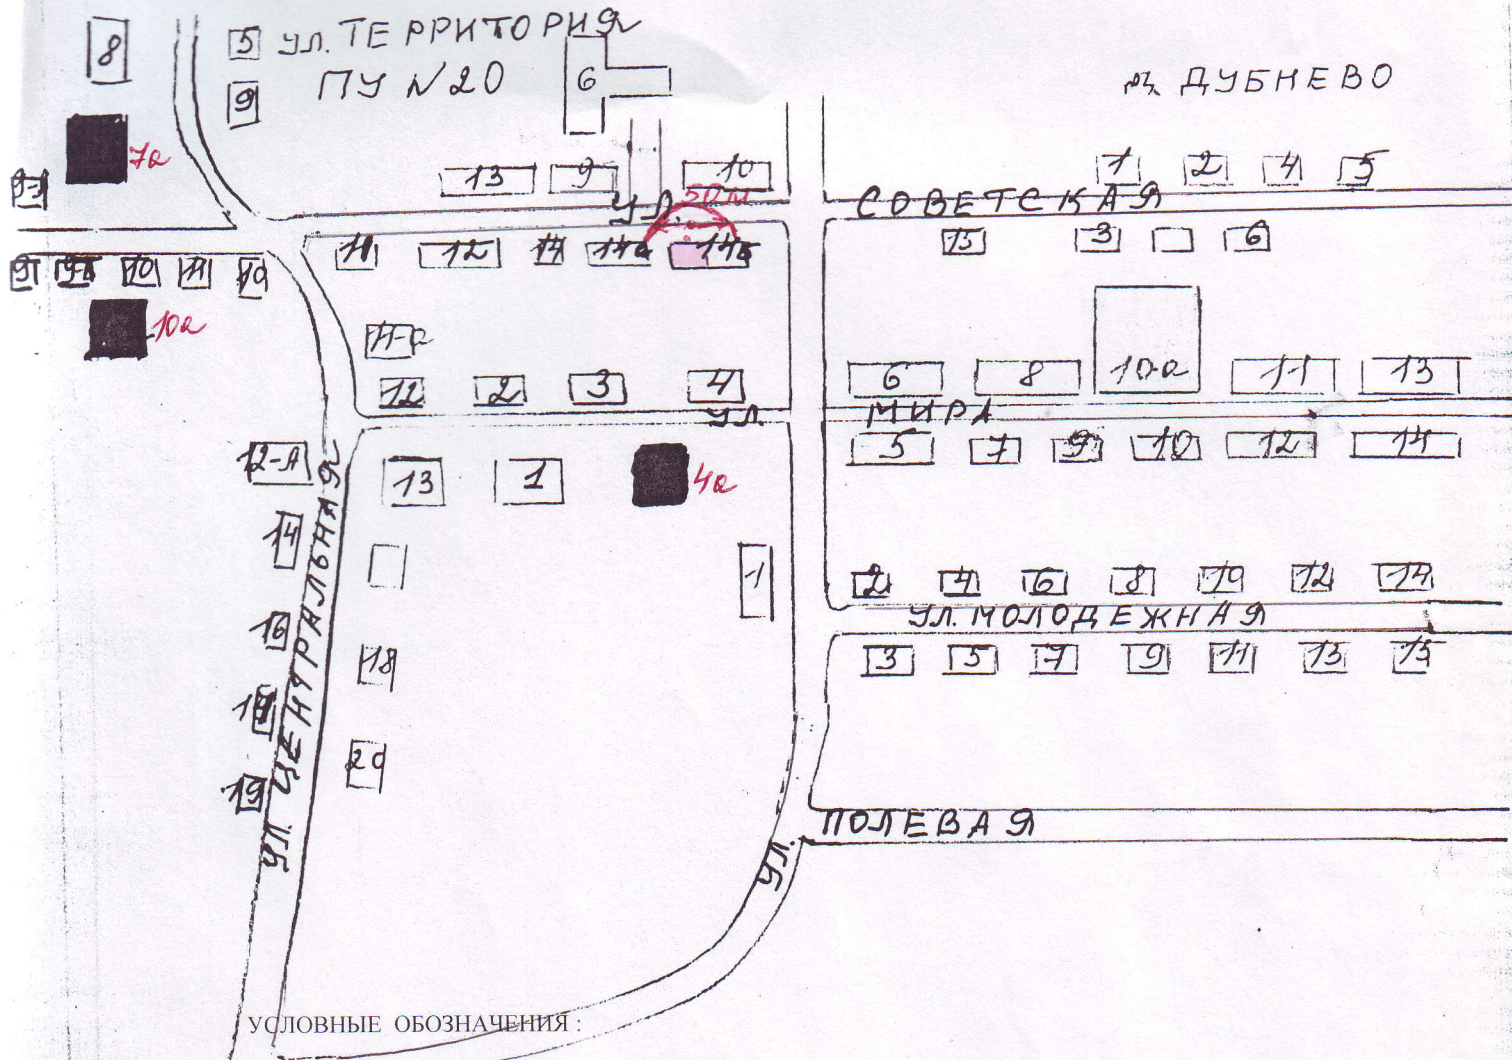 8
5 УЛ. ТЕРРИТОРИЯ
9 ПУ N20
6
Д. ДУБНЕВО
7а
13 9 10
1 2 4 5
50 м
УЛ. СОВЕТСКАЯ
11 12 14 14а 14б
15 3 6
10 11
10а
11-а
12 2 3 4
6 8 10-а 11 13
УЛ. МИРА
5 7 9 10 12 14
12-А
13 1
4а
14
1
2 4 6 8 10 12 14
УЛ. МОЛОДЕЖНАЯ
3 5 7 9 11 13 15
16
18
19
20
УЛ. ЦЕНТРАЛЬНАЯ
УЛ. ПОЛЕВАЯ
УСЛОВНЫЕ ОБОЗНАЧЕНИЯ :